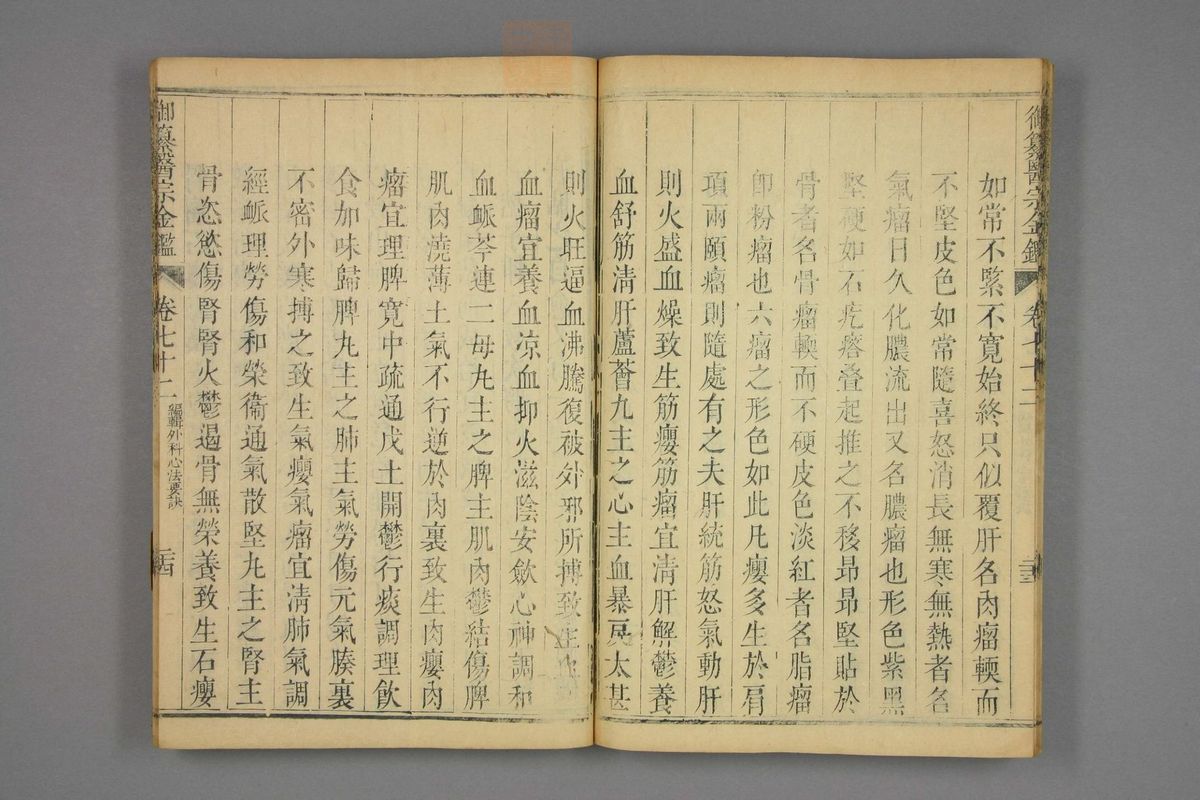 御纂醫宗金鑑 卷七十二 二三
如常不緊不寬始終只似覆肝名肉瘤輭而
不堅皮色如常隨喜怒消長無寒無熱者名
氣瘤日久化膿流出又名膿瘤也形色紫黑
堅硬如石疙瘩叠起推之不移昂昂堅貼於
骨者名骨瘤輭而不硬皮色淡紅者名脂瘤
卽粉瘤也六瘤之形色如此凡癭多生於肩
項兩頤瘤則隨處有之夫肝統筋怒氣動肝
則火盛血燥致生筋癭筋瘤宜清肝解鬱養
血舒筋清肝蘆薈丸主之心主血暴戾太甚
則火旺逼血沸騰復被外邪所搏致生血
血瘤宜養血凉血抑火滋陰安斂心神調和
血脈芩連二母丸主之脾主肌肉鬱結傷脾
肌肉澆薄土氣不行逆於肉裏致生肉癭肉
瘤宜理脾寬中疏通戊土開鬱行痰調理飲
食加味歸脾丸主之肺主氣勞傷元氣腠裏
不密外寒搏之致生氣癭氣瘤宜清肺氣調
經脈理勞傷和榮衞通氣散堅丸主之腎主
骨恣慾傷腎腎火鬱遏骨無榮養致生石癭
御纂醫宗金鑑 卷七十二 編輯外科心法要訣 二四